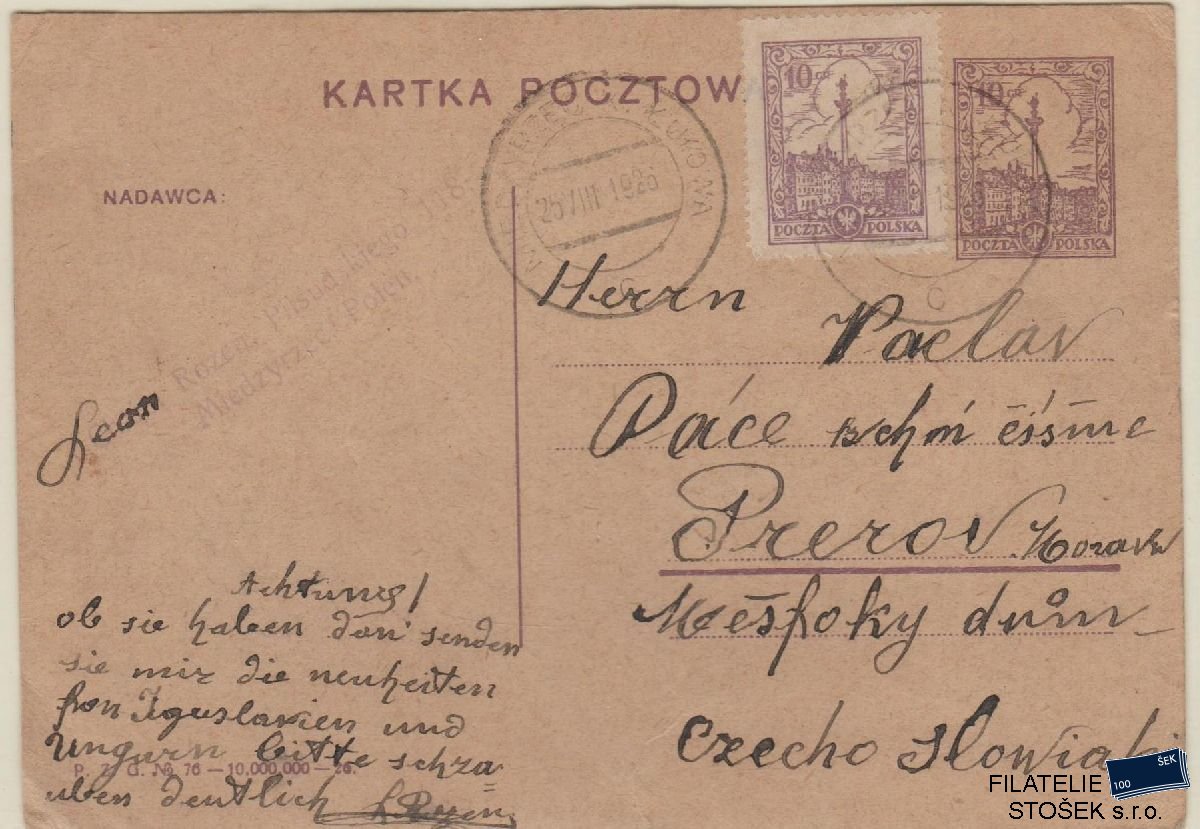 KARTKA POCZTOW
10 gr
POCZTA POLSKA
10
POCZTA POLSKA
25 VIII 1926
C
NADAWCA:
Leon Rozen Piłsudskiego 18
Międzyrzec Polen.
Herrn
Vaclav
Páce
Prerov Morava
dům
Czecho Slowiaki
Achtung!
ob sie haben dan senden
sie mir die neuheiten
fon Jguslavien und
Ungarn bitte schra
uben deutlich
P. Z. G. № 76 — 10,000,000 — 26.
FILATELIE
STOŠEK s.r.o.
100 ŠEK